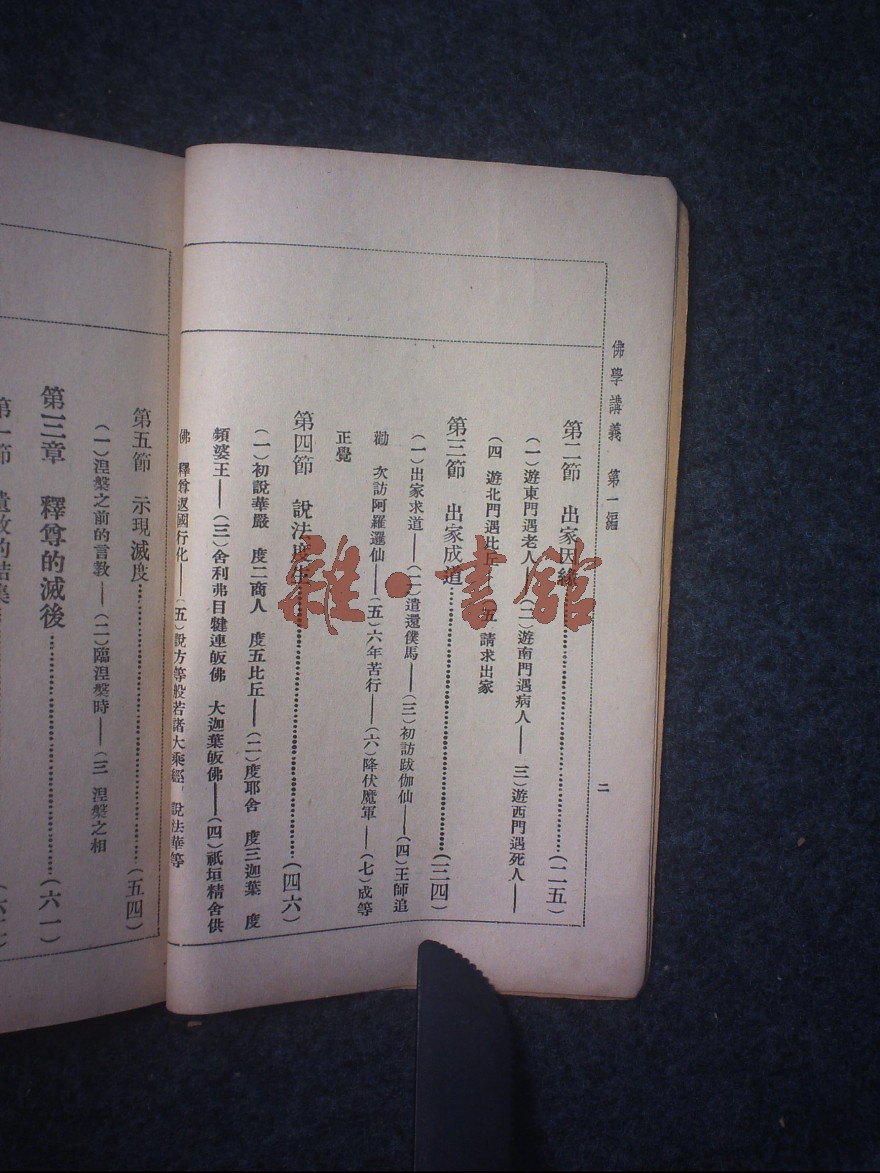 佛學講義　第一編
二
第二節　出家因緣…………(二五)
(一)遊東門遇老人——(二)遊南門遇病人——　三)遊西門遇死人——
(四　遊北門遇比丘　五　請求出家
第三節　出家成道…………(三四)
(一)出家求道——(二)遣還僕馬——(三)初訪跋伽仙——(四)王師追
勸　次訪阿羅邏仙——(五)六年苦行——(六)降伏魔軍——(七)成等
正覺
第四節　說法度生…………(四六)
(一)初說華嚴　度二商人　度五比丘——(二)度耶舍　度三迦葉　度
頻婆王——(三)舍利弗目犍連皈佛　大迦葉皈佛——(四)祇垣精舍供
佛　釋尊返國行化——(五)說方等般若諸大乘經　說法華等
第五節　示現滅度…………(五四)
(一)涅槃之前的言教——(二)臨涅槃時——(三　涅槃之相
第三章　釋尊的滅後…………(六一)
第一節　遺教的結集
雜·書館